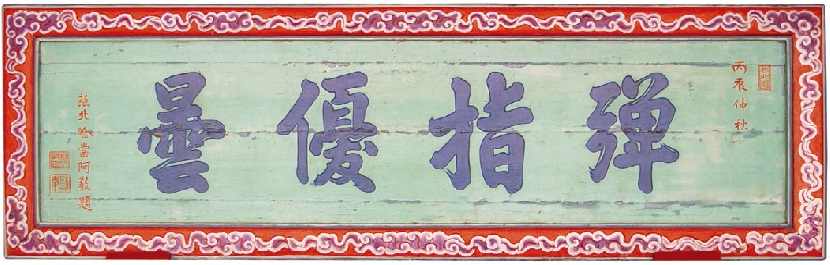 丙辰仲秋
彈指優曇
燕北哈當阿敬題